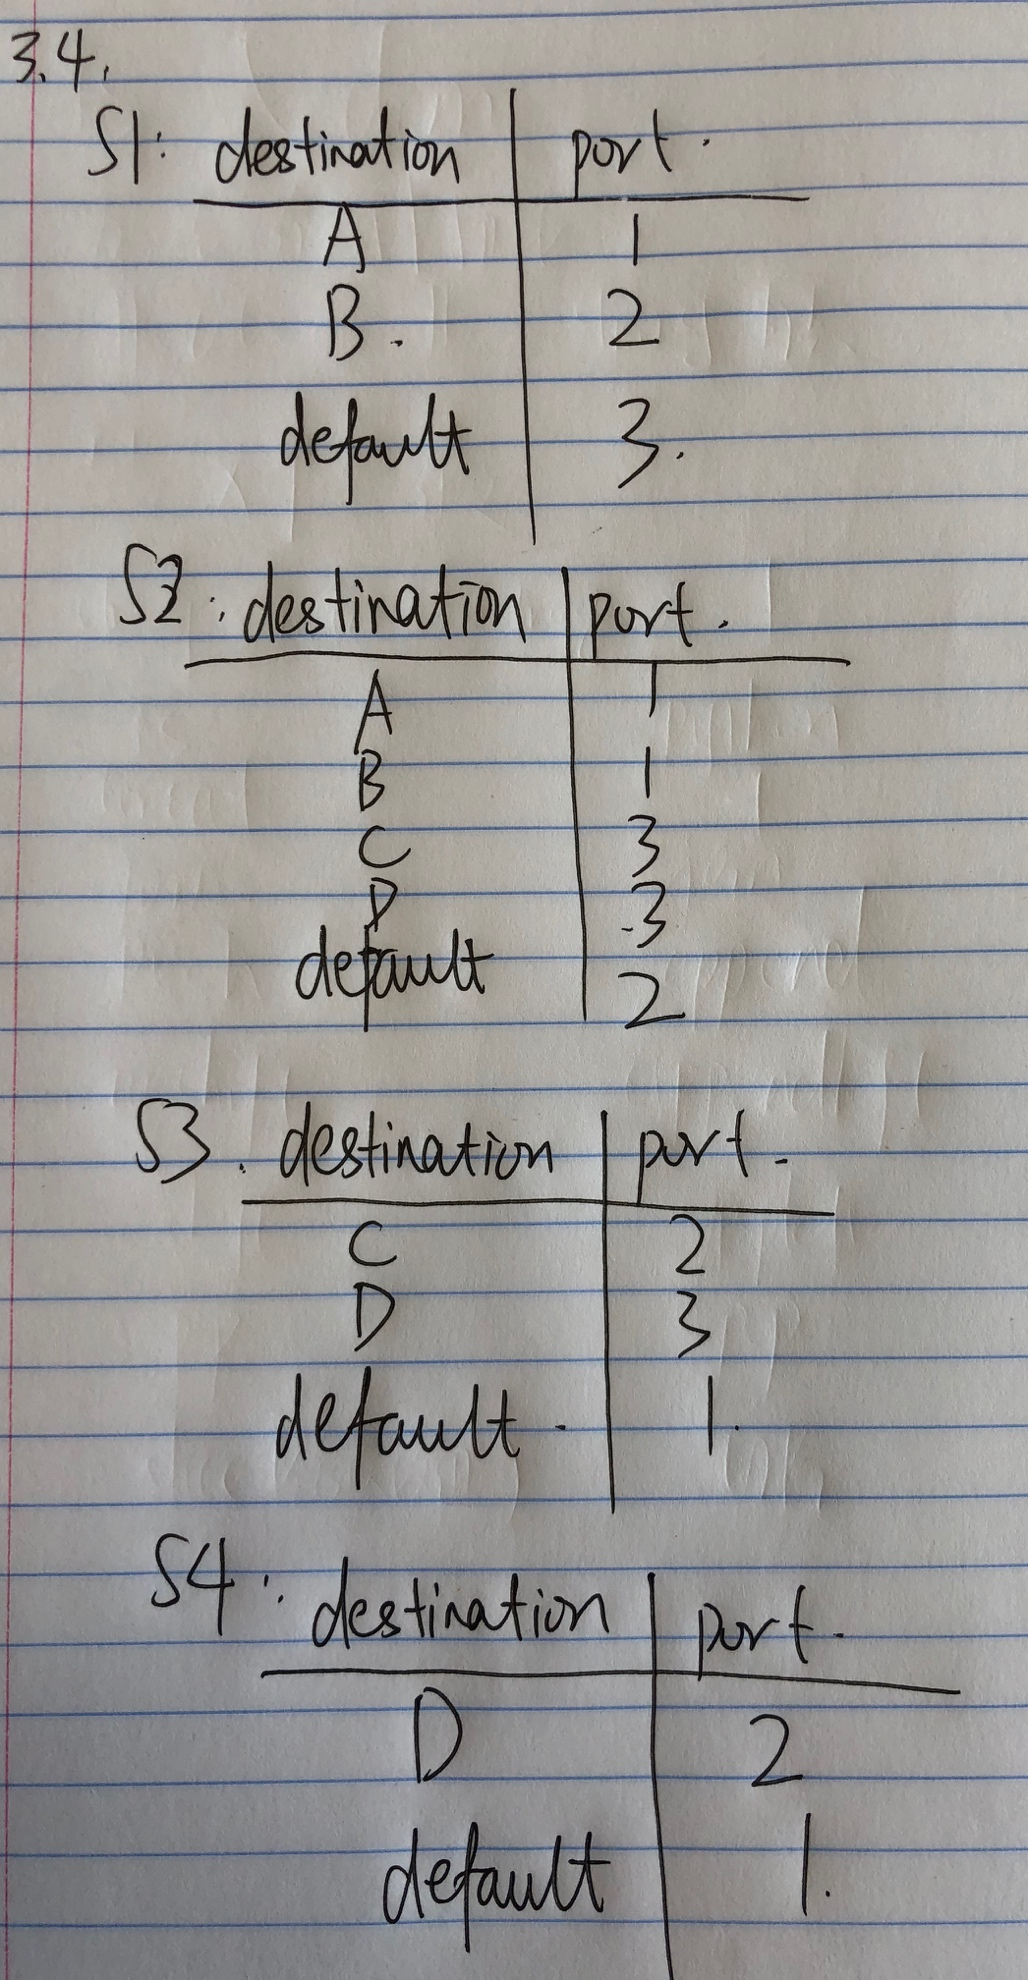 3.4.
S1: destination | port.
A | 1
B. | 2
default | 3.
S2: destination | port.
A | 1
B | 1
C | 3
D | 3
default | 2
S3. destination | port.
C | 2
D | 3
default. | 1.
S4: destination | port.
D | 2
default | 1.